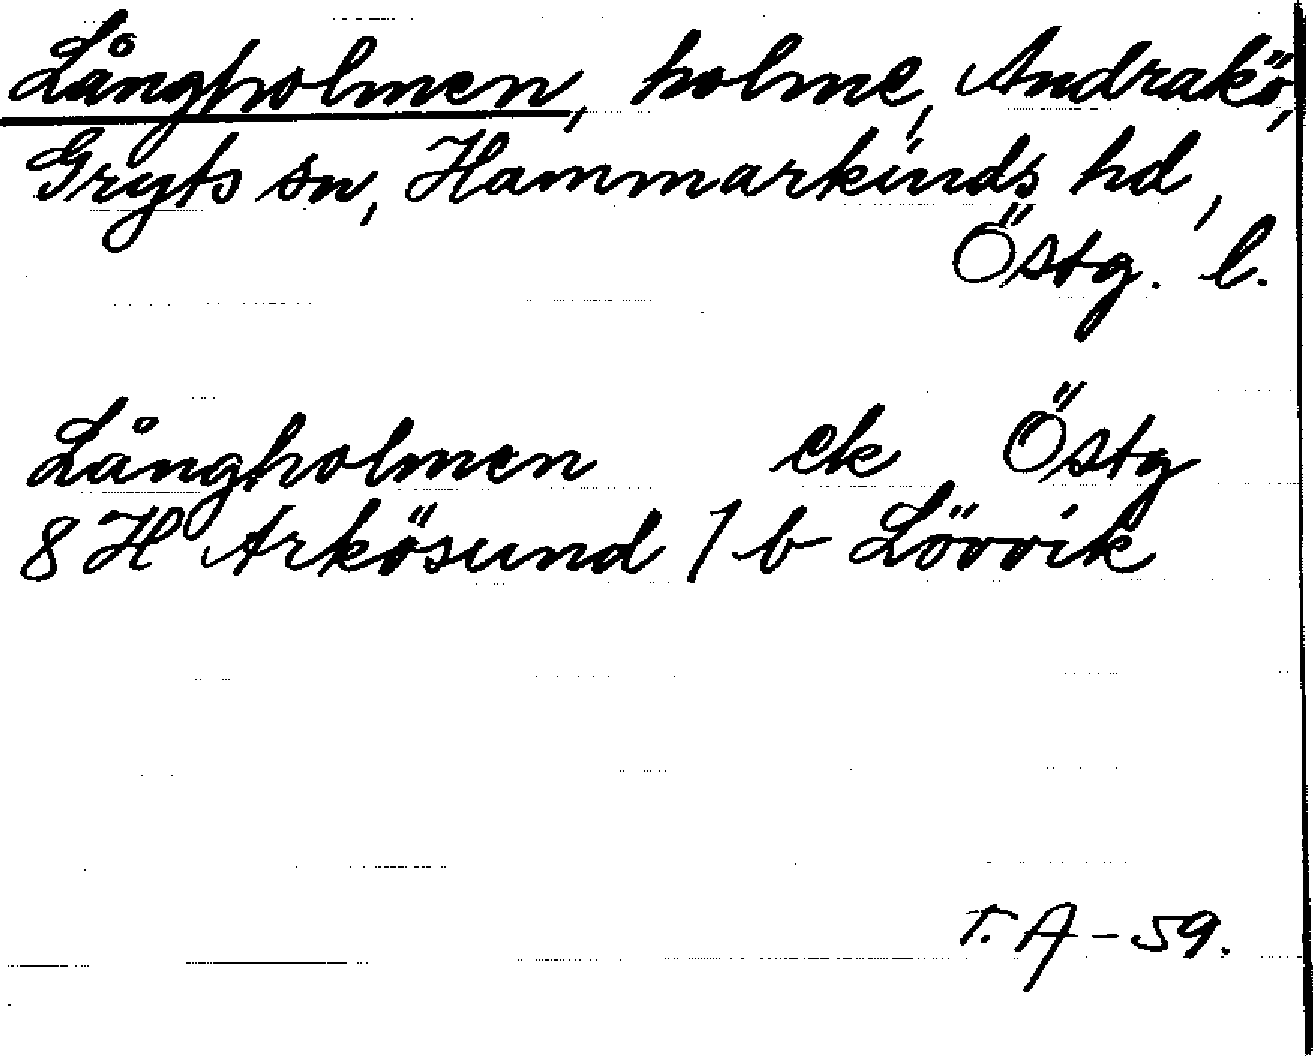 Långholmen, holme, Andrakö,
Gryts sn, Hammarkinds hd,
Östg. l.
Långholmen ek Östg
8 H Arkösund 1 b Lövvik
T. A - 59.